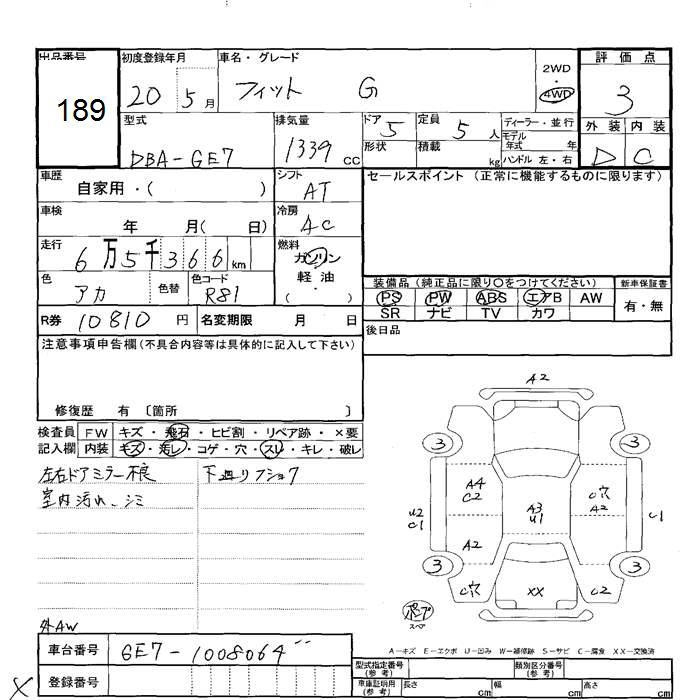 出品番号 初度登録年月 車名・グレード 評価点
189 20 5月 フィット G 2WD 4WD 3
型式 排気量 ドア 定員 ディーラー・並行 外装 内装
DBA-GE7 1339cc 5 5人 モデル年式 年 D C
形状 積載 kg ハンドル 左・右
車歴 シフト セールスポイント (正常に機能するものに限ります)
自家用・( ) AT
車検 冷房
年 月( 日) AC
走行 燃料
6万5千366km ガソリン
色 色替 色コード 軽油・
アカ R81 ( ) 装備品(純正品に限り○をつけてください) 新車保証書
PS PW ABS エアB AW 有・無
R券 10810円 名変期限 月 日 SR ナビ TV カワ
注意事項申告欄(不具合内容等は具体的に記入して下さい) 後日品
修復歴 有 〔箇所 〕
検査員 FW キズ・飛石・ヒビ割・リペア跡・×要
記入欄 内装 キズ・汚レ・コゲ・穴・スレ・キレ・破レ
左右ドアミラー根 下廻りフショク
室内汚れ、シミ
A2
3 3
A4 C穴
C2 A2
U2 A3 U1
C1 U1
A2
3 3
C穴 XX C2
スペ
外AW A-キズ E-エクボ U-凹み W-補修跡 S-サビ C-腐食 XX-交換済
車台番号 GE7-1008064
型式指定番号(参考) 類別区分番号(参考)
X 登録番号 車庫証明用(参考) 長さ cm 幅 cm 高さ cm